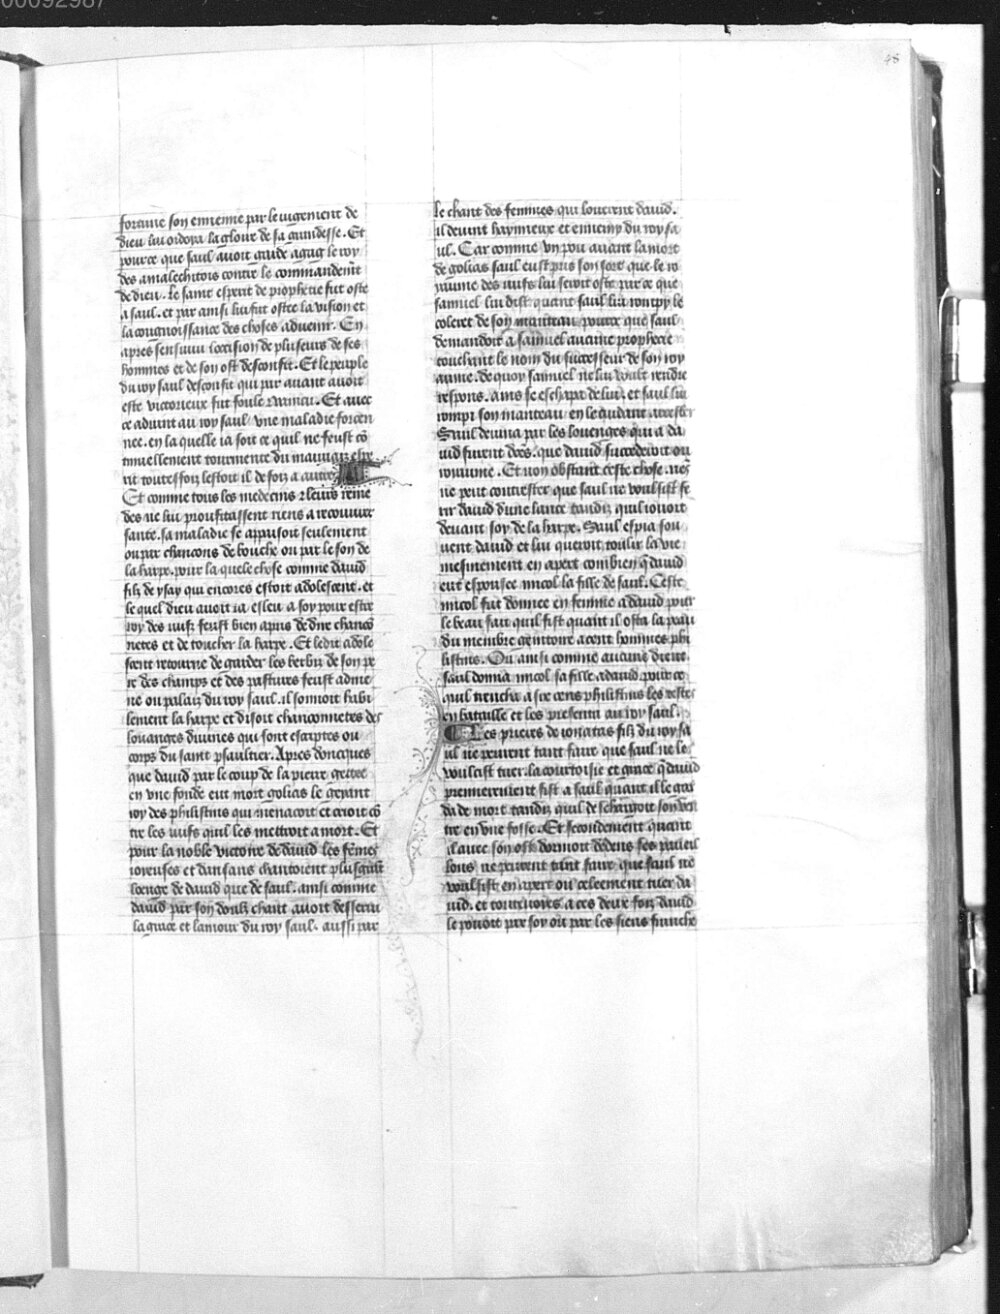 00092987
48
fortune son ennemie par le iugement de
dieu lui ordoya la gloire de sa grandesse. Et
pource que saul auoit garde agag le roy
des amalechitois contre le commandemt
de dieu. le saint esperit de prophecie fut oste
a saul. et par ainsi lui fut ostee la vision et
la congnoissance des choses aduenir. En
apres sensuiui loccision de plusieurs de ses
hommes et de son ost desconfit. Et le peuple
du roy saul desconfit qui par auant auoit
este victorieux fut foule vaincu. Et auec
ce aduint au roy saul vne maladie forcen
nee. en la quelle ia soit ce quil ne feust cō
tinuellement tourmente du mauuaiz espe
rit toutesfoiz lestoit il de foiz a autre
Et comme tous les medecins z leurs reme
des ne lui proufitassent riens a recouurer
sante. sa maladie se appaisoit seulement
ou par chancons de bouche ou par le son de
la harpe. pour la quele chose comme dauid
filz de ysay qui encores estoit adolescent. et
le quel dieu auoit ia esleu a soy pour estre
roy des iuifz feust bien apris de dire chanco
netes et de toucher la harpe. Et ledit adole
scent retourne de garder les berbiz de son pe
re des champs et des pastures feust adme
ne ou palaiz du roy saul. il sonnoit habi
lement la harpe et disoit chanconnetes des
louanges diuines qui sont escriptes ou
corps du saint psaultier. Apres doncques
que dauid par le coup de la pierre gectee
en vne fonde eut mort golias le geyant
roy des philistins qui menacoit et crioit cō
tre les iuifs quil les mettroit a mort. Et
pour la noble victoire de dauid les fēmes
ioieuses et dansans chantoient plusgrāt
loenge de dauid que de saul. ainsi comme
dauid par son doulz chant auoit desserui
la grace et lamour du roy saul. aussi par
le chant des femmes qui louerent dauid.
il deuint haynneux et ennemy du roy sa
ul. Car comme vn pou auant la mort
de golias saul eust pris son sort que le ro
yaume des iuifs lui seroit oste par ce que
samuel lui dist quant saul lui rompy le
coleret de son manteau pource que saul
demandoit a samuel aucune prophecie
touchant le nom du successeur de son roy
aume. de quoy samuel ne lui voult rendre
respons. ains se eschapa de lui. et saul lui
rompi son manteau en le cuidant arrester
Saul deuina par les louenges qui a da
uid furent dees. que dauid succederoit ou
royaume. Et non obstant ceste chose. nez
ne peut contrester que saul ne voulsist fe
rir dauid dune lance tandiz quil iouoit
deuant soy de la harpe. Saul espia sou
uent dauid et lui queroit toulir la vie
mesmement en apert combien q̄ dauid
eut espousee micol la fille de saul. Ceste
micol fut donnee en femme a dauid pour
le beau fait quil fist quant il osta la peau
du membre genitoire a cent hommes phi
listins. Ou ainsi comme aucuns dient.
saul donna micol sa fille a dauid. pour ce
quil trencha a six cens philistins les testes
en bataille et les presenta au roy saul.
Les prieres de ionatas filz du roy sa
ul ne peurent tant faire que saul ne le
voulsist tuer. la courtoisie et grace q̄ dauid
premierement fist a saul quant il le gar
da de mort tandiz quil deschargoit son ven
tre en vne fosse. Et secondement quant
il auec son ost dormoit dedens ses paueil
lons ne peurent tant faire que saul ne
voulsist en apert ou celeement tuer da
uid. et toutuoies a ces deux foiz dauid
le pouoit par soy ou par les siens franche